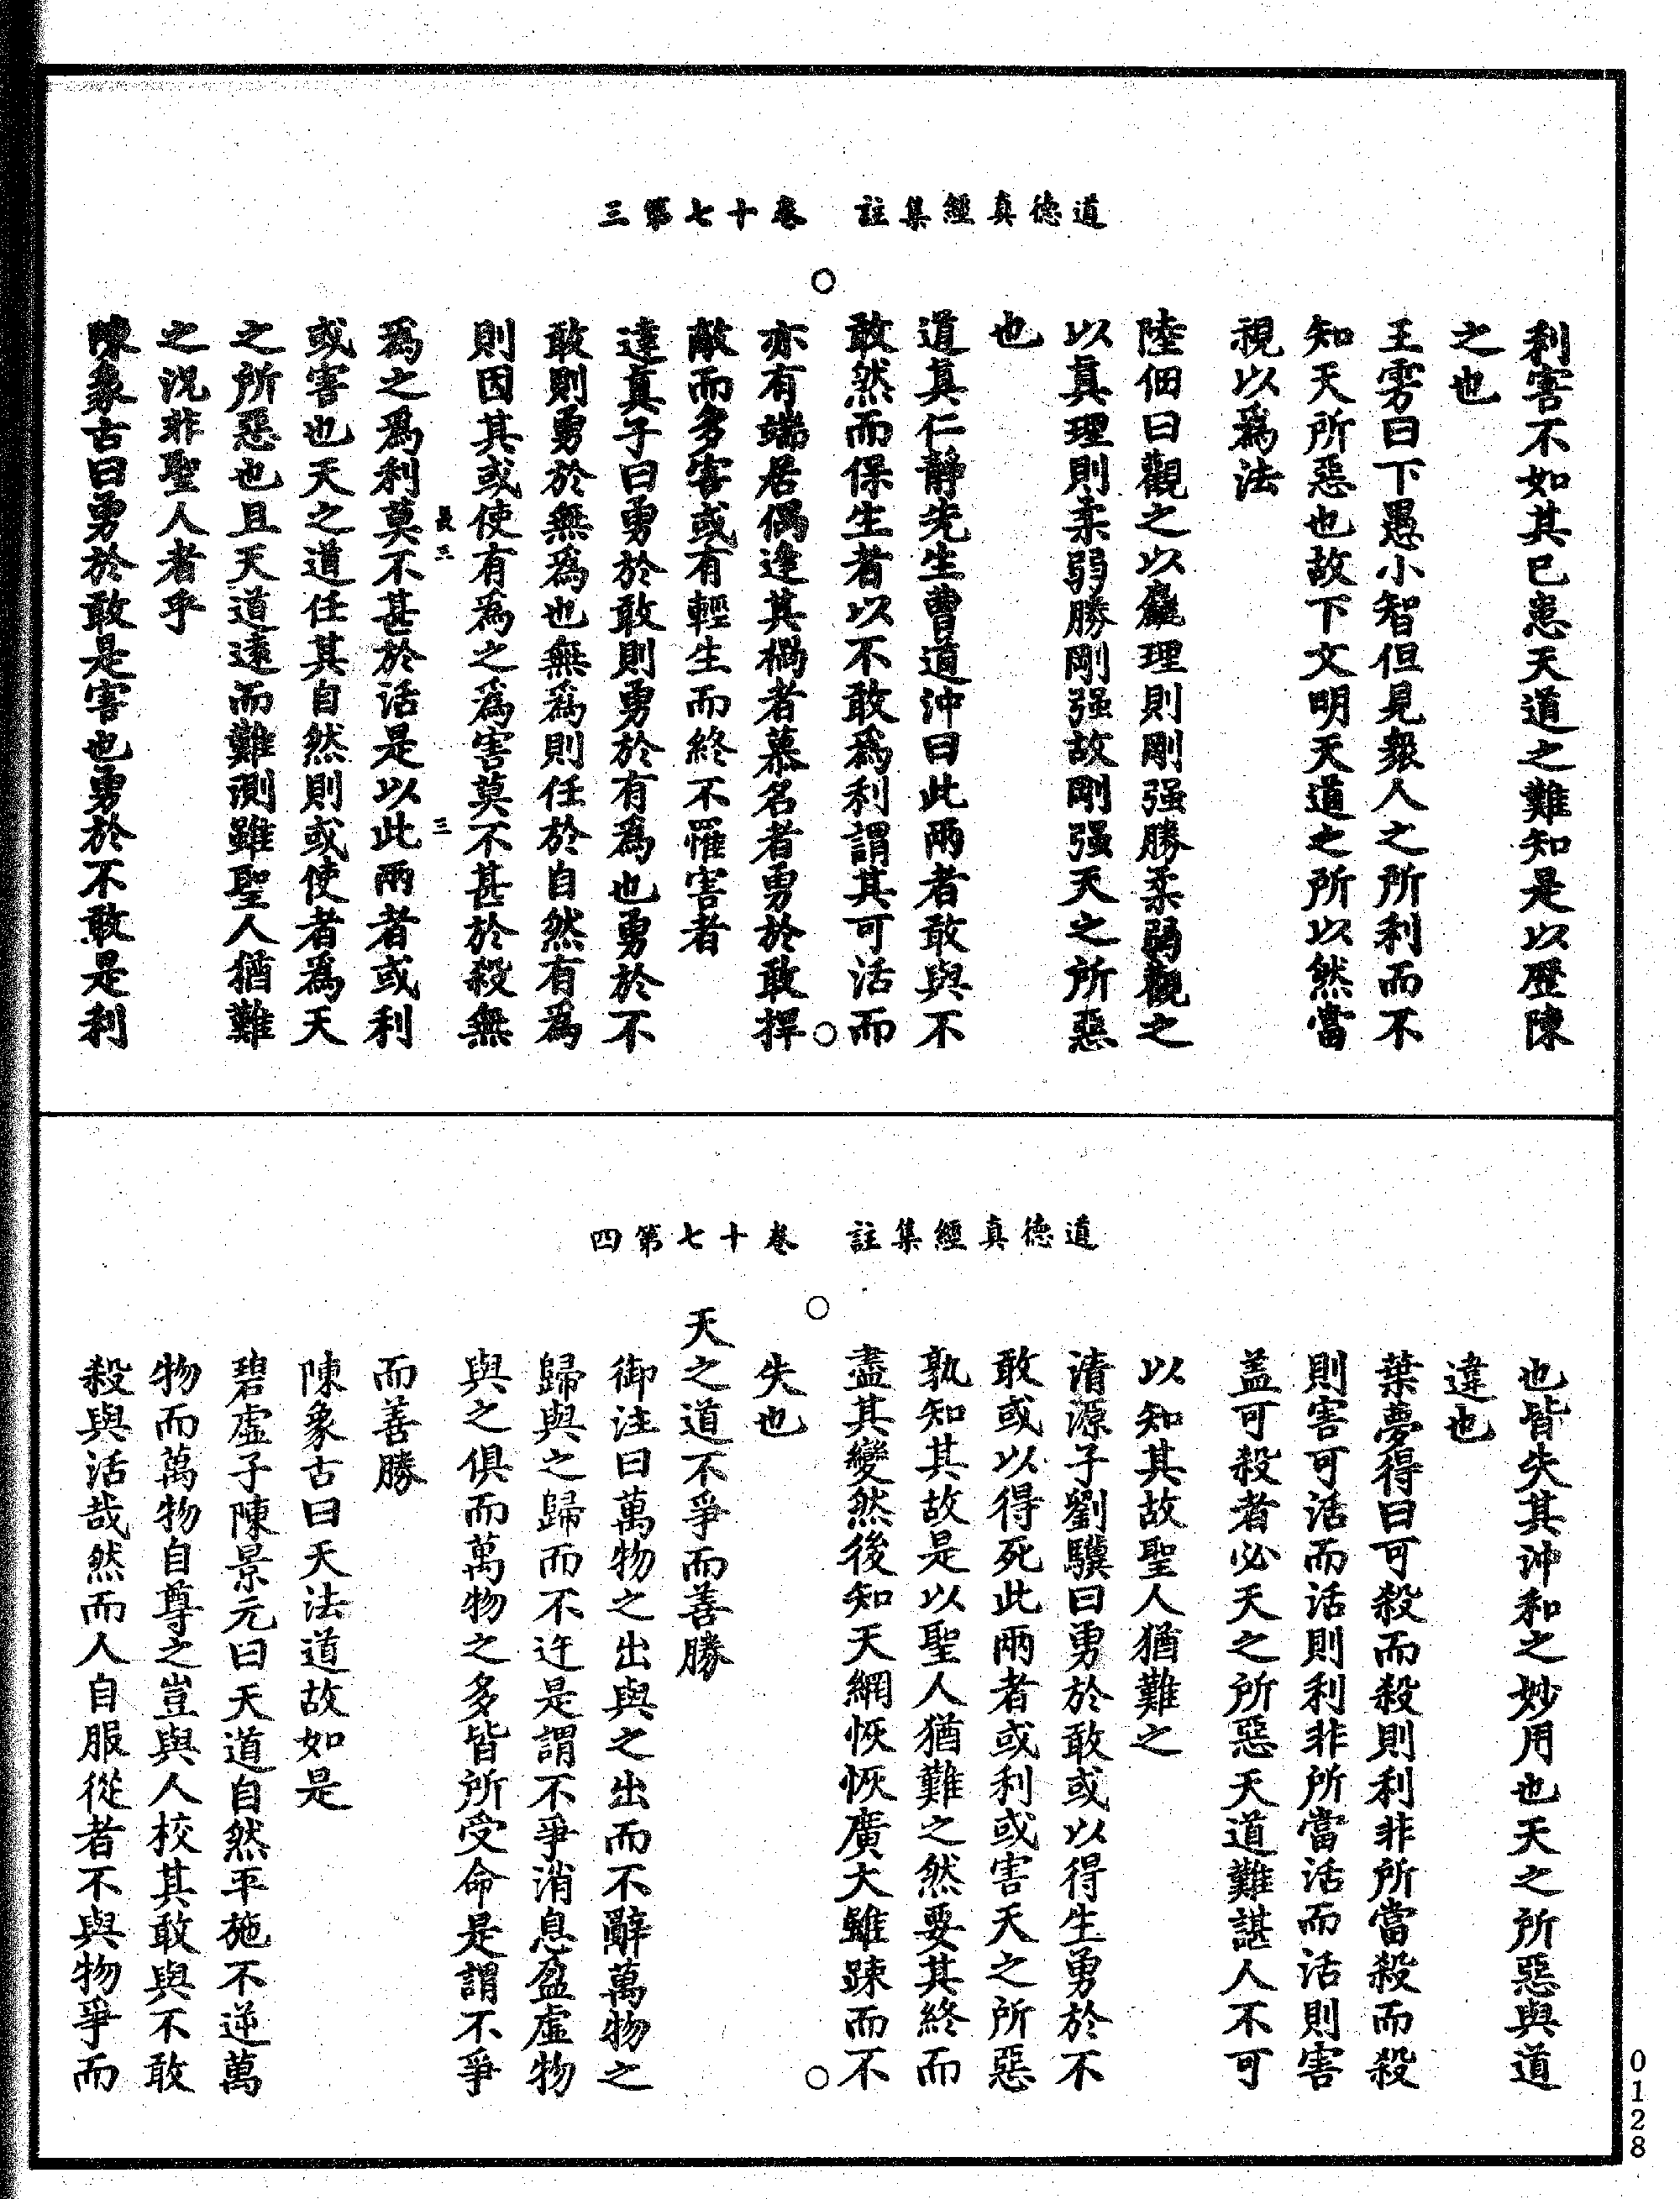 道德真經集註　卷十七第三
利害不如其已患天道之難知是以歷陳
之也
王雱曰下愚小智但見衆人之所利而不
知天所惡也故下文明天道之所以然當
視以爲法
陸佃曰觀之以麤理則剛强勝柔弱觀之
以真理則柔弱勝剛强故剛强天之所惡
也
道真仁靜先生曹道沖曰此兩者敢與不
敢然而保生者以不敢爲利謂其可活而
亦有端居偶逢其禍者慕名者勇於敢捍
敵而多害或有輕生而終不罹害者
達真子曰勇於敢則勇於有爲也勇於不
敢則勇於無爲也無爲則任於自然有爲
則因其或使有爲之爲害莫不甚於殺無
爲之爲利莫不甚於活是以此兩者或利
或害也天之道任其自然則或使者爲天
之所惡也且天道遠而難測雖聖人猶難
之況非聖人者乎
陳象古曰勇於敢是害也勇於不敢是利
三
道德真經集註　卷十七第四
也皆失其沖和之妙用也天之所惡與道
違也
葉夢得曰可殺而殺則利非所當殺而殺
則害可活而活則利非所當活而活則害
盖可殺者必天之所惡天道難諶人不可
以知其故聖人猶難之
清源子劉驥曰勇於敢或以得生勇於不
敢或以得死此兩者或利或害天之所惡
孰知其故是以聖人猶難之然要其終而
盡其變然後知天網恢恢廣大雖踈而不
失也
天之道不爭而善勝
御注曰萬物之出與之出而不辭萬物之
歸與之歸而不迕是謂不爭消息盈虛物
與之俱而萬物之多皆所受命是謂不爭
而善勝
陳象古曰天法道故如是
碧虛子陳景元曰天道自然平施不逆萬
物而萬物自尊之豈與人校其敢與不敢
殺與活哉然而人自服從者不與物爭而
0128